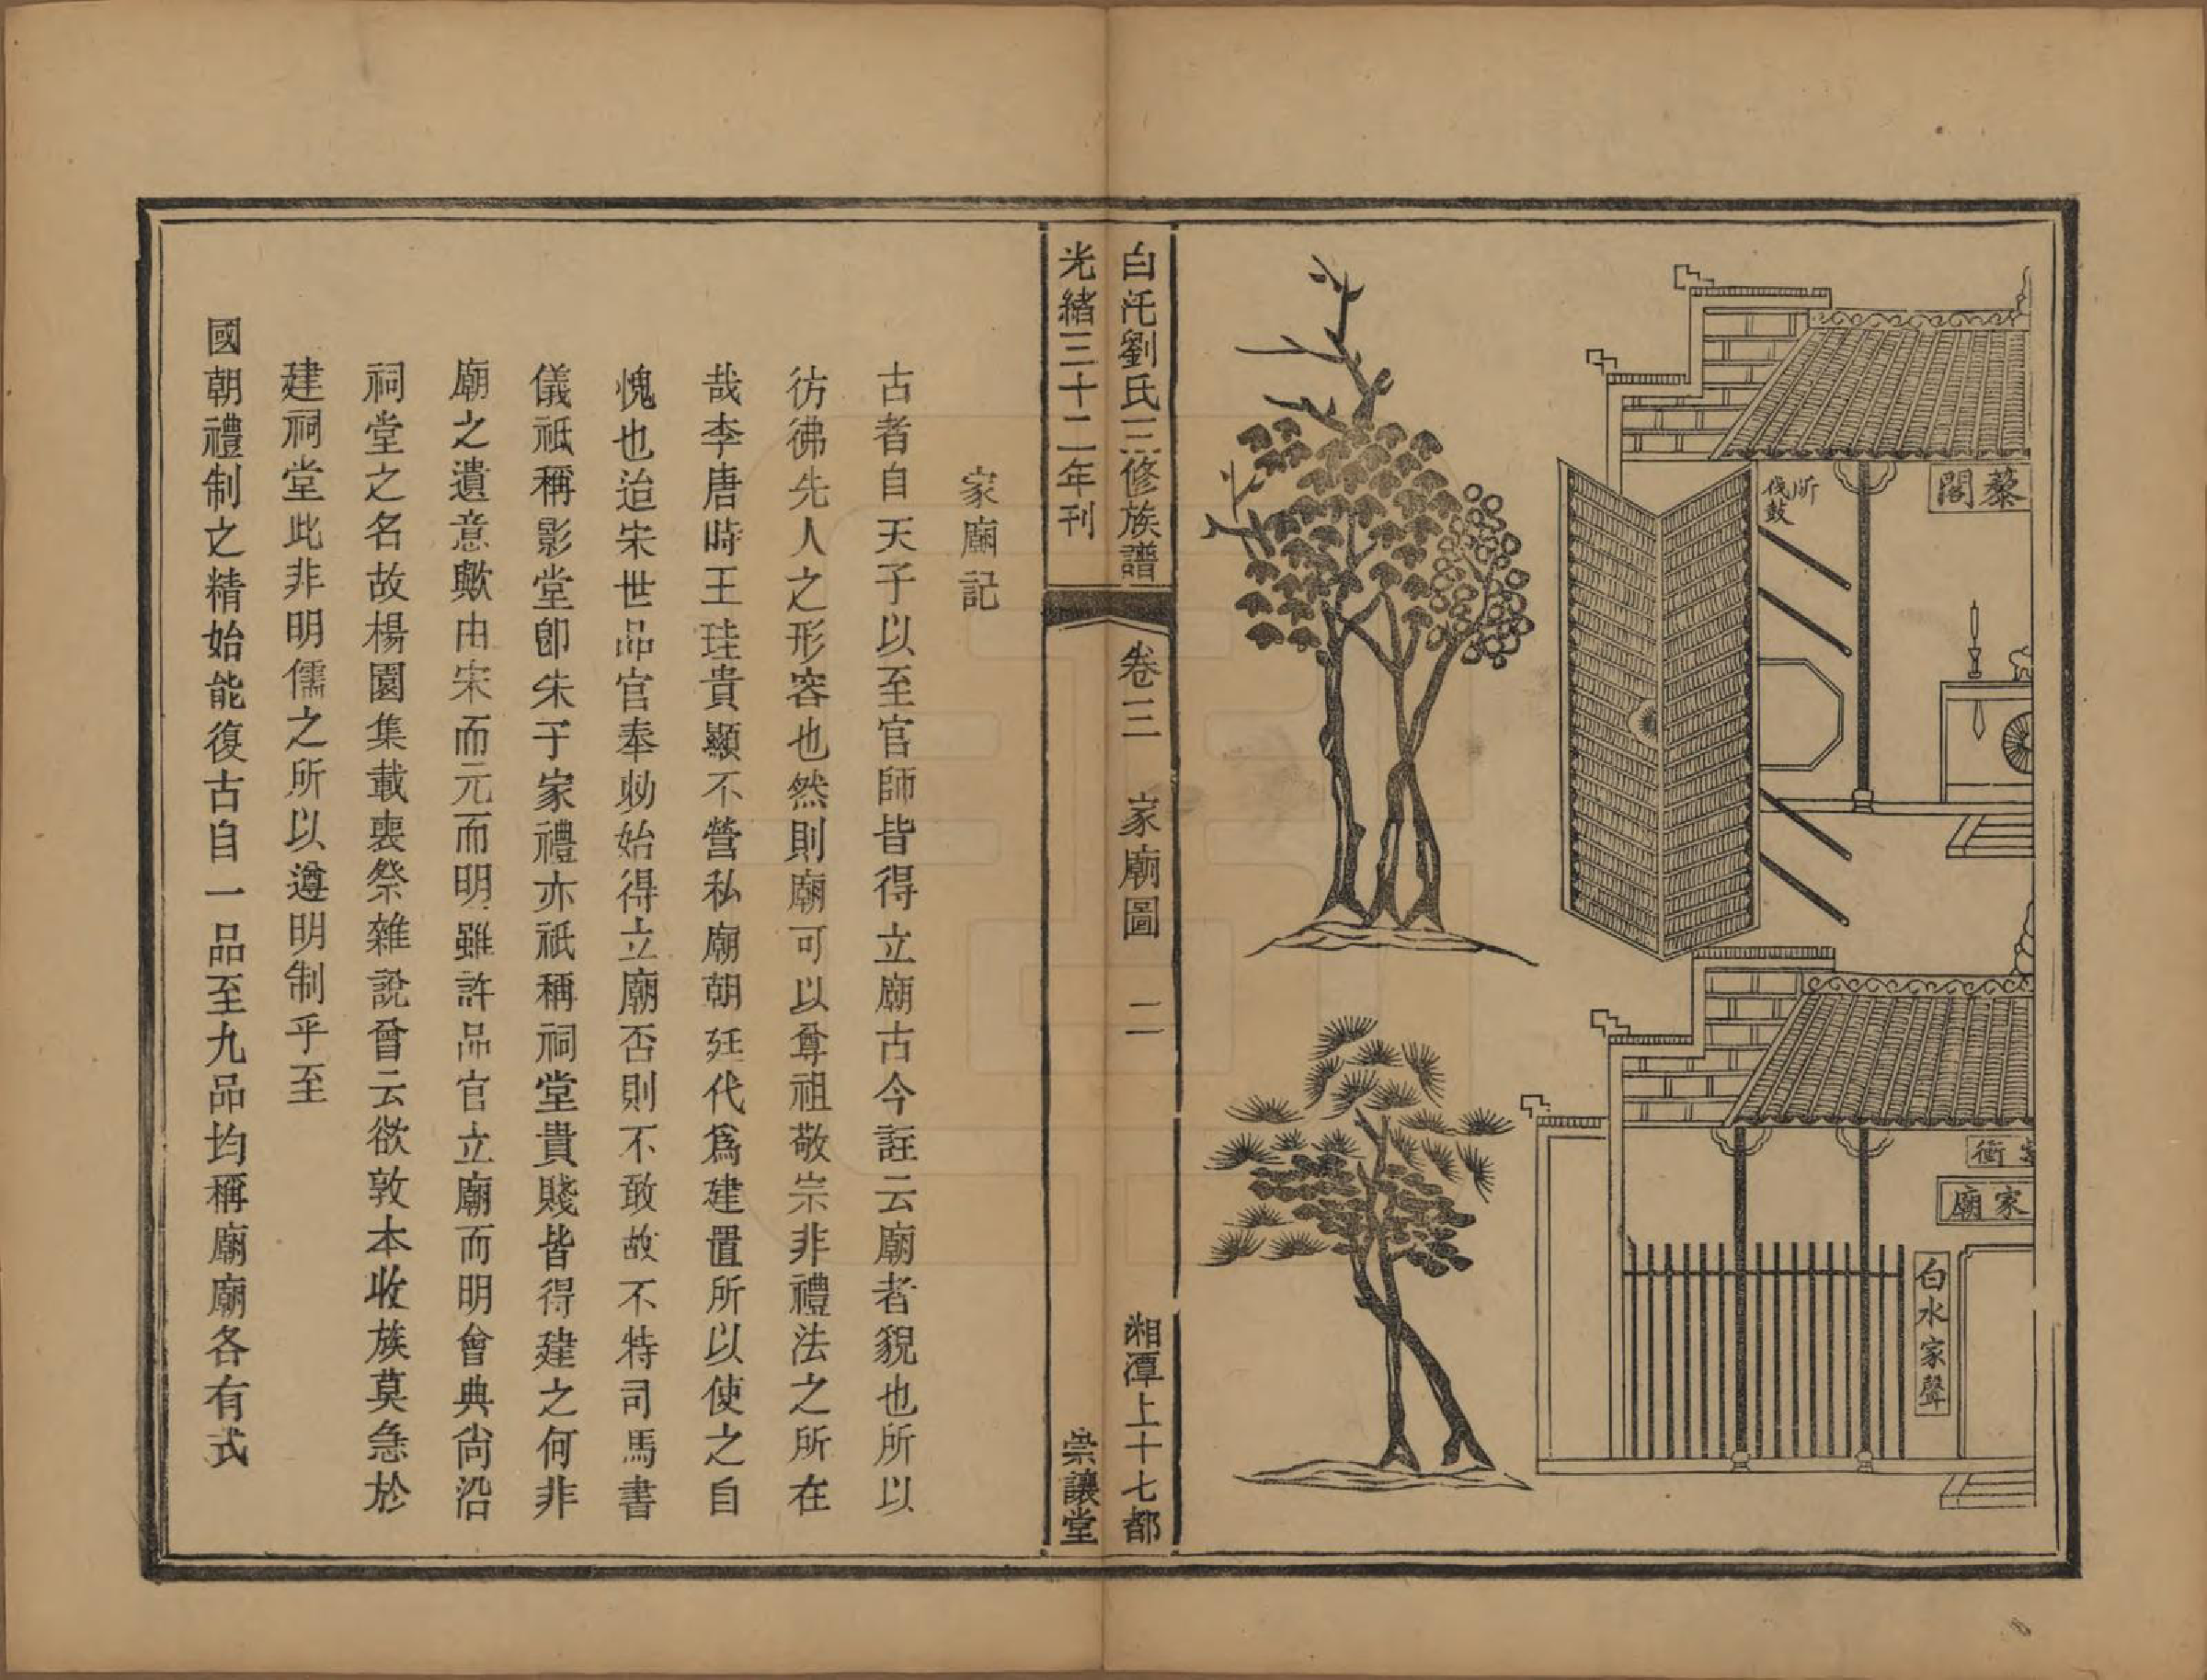 藜閣
所
伐鼓
衡
家廟
白水家聲
白汑劉氏三修族譜
卷三
家廟圖
二
湘潭上十七都
光緒三十二年刊
崇讓堂
家廟記
古者自天子以至官師皆得立廟古今註云廟者貌也所以
彷彿先人之形容也然則廟可以尊祖敬宗非禮法之所在
哉李唐時王珪貴顯不營私廟朝廷代爲建置所以使之自
愧也迨宋世品官奉勅始得立廟否則不敢故不特司馬書
儀祇稱影堂卽朱子家禮亦祇稱祠堂貴賤皆得建之何非
廟之遺意歟由宋而元而明雖許品官立廟而明會典尙沿
祠堂之名故楊園集載喪祭雜說曾云欲敦本收族莫急於
建祠堂此非明儒之所以遵明制乎至
國朝禮制之精始能復古自一品至九品均稱廟廟各有式